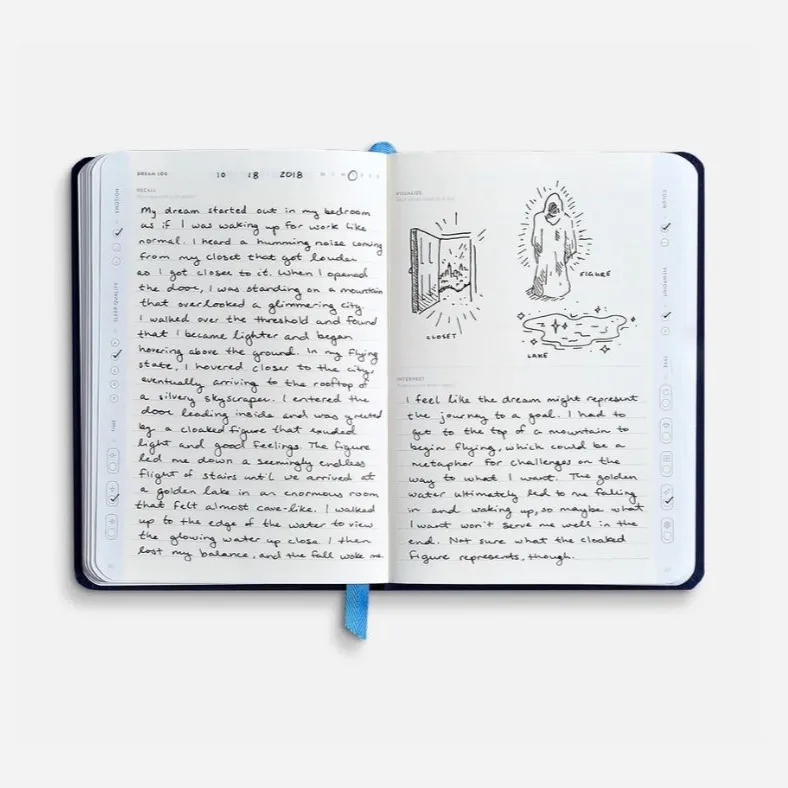 DREAM LOG 10 18 2018
RECALL
My dream started out in my bedroom
as if I was waking up for work like
normal. I heard a humming noise coming
from my closet that got louder
as I got closer to it. When I opened
the door, I was standing on a mountain
that overlooked a glimmering city.
I walked over the threshold and found
that I became lighter and began
hovering above the ground. In my flying
state, I hovered closer to the city,
eventually arriving to the rooftop of
a silvery skyscraper. I entered the
door leading inside and was greeted
by a cloaked figure that exuded
light and good feelings. The figure
led me down a seemingly endless
flight of stairs until we arrived at
a golden lake in an enormous room
that felt almost cave-like. I walked
up to the edge of the water to view
the glowing water up close. I then
lost my balance, and the fall woke me.
EMOTION
SLEEP QUALITY
TIME
VISUALIZE
CLOSET
FIGURE
LAKE
INTERPRET
I feel like the dream might represent
the journey to a goal. I had to
get to the top of a mountain to
begin flying, which could be a
metaphor for challenges on the
way to what I want. The golden
water ultimately led to me falling
in and waking up, so maybe what
I want won't serve me well in the
end. Not sure what the cloaked
figure represents, though.
COLOR
VIEWPOINT
TYPE